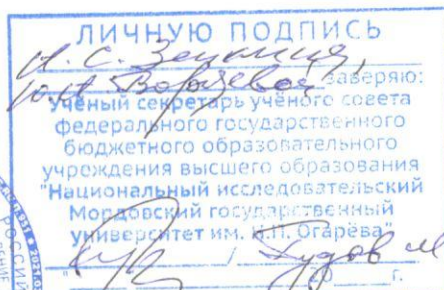 ЛИЧНУЮ ПОДПИСЬ
заверяю:
Учёный секретарь учёного совета
федерального государственного
бюджетного образовательного
учреждения высшего образования
"Национальный исследовательский
Мордовский государственный
университет им. Н.П. Огарёва"
/ Гудов М
" г.